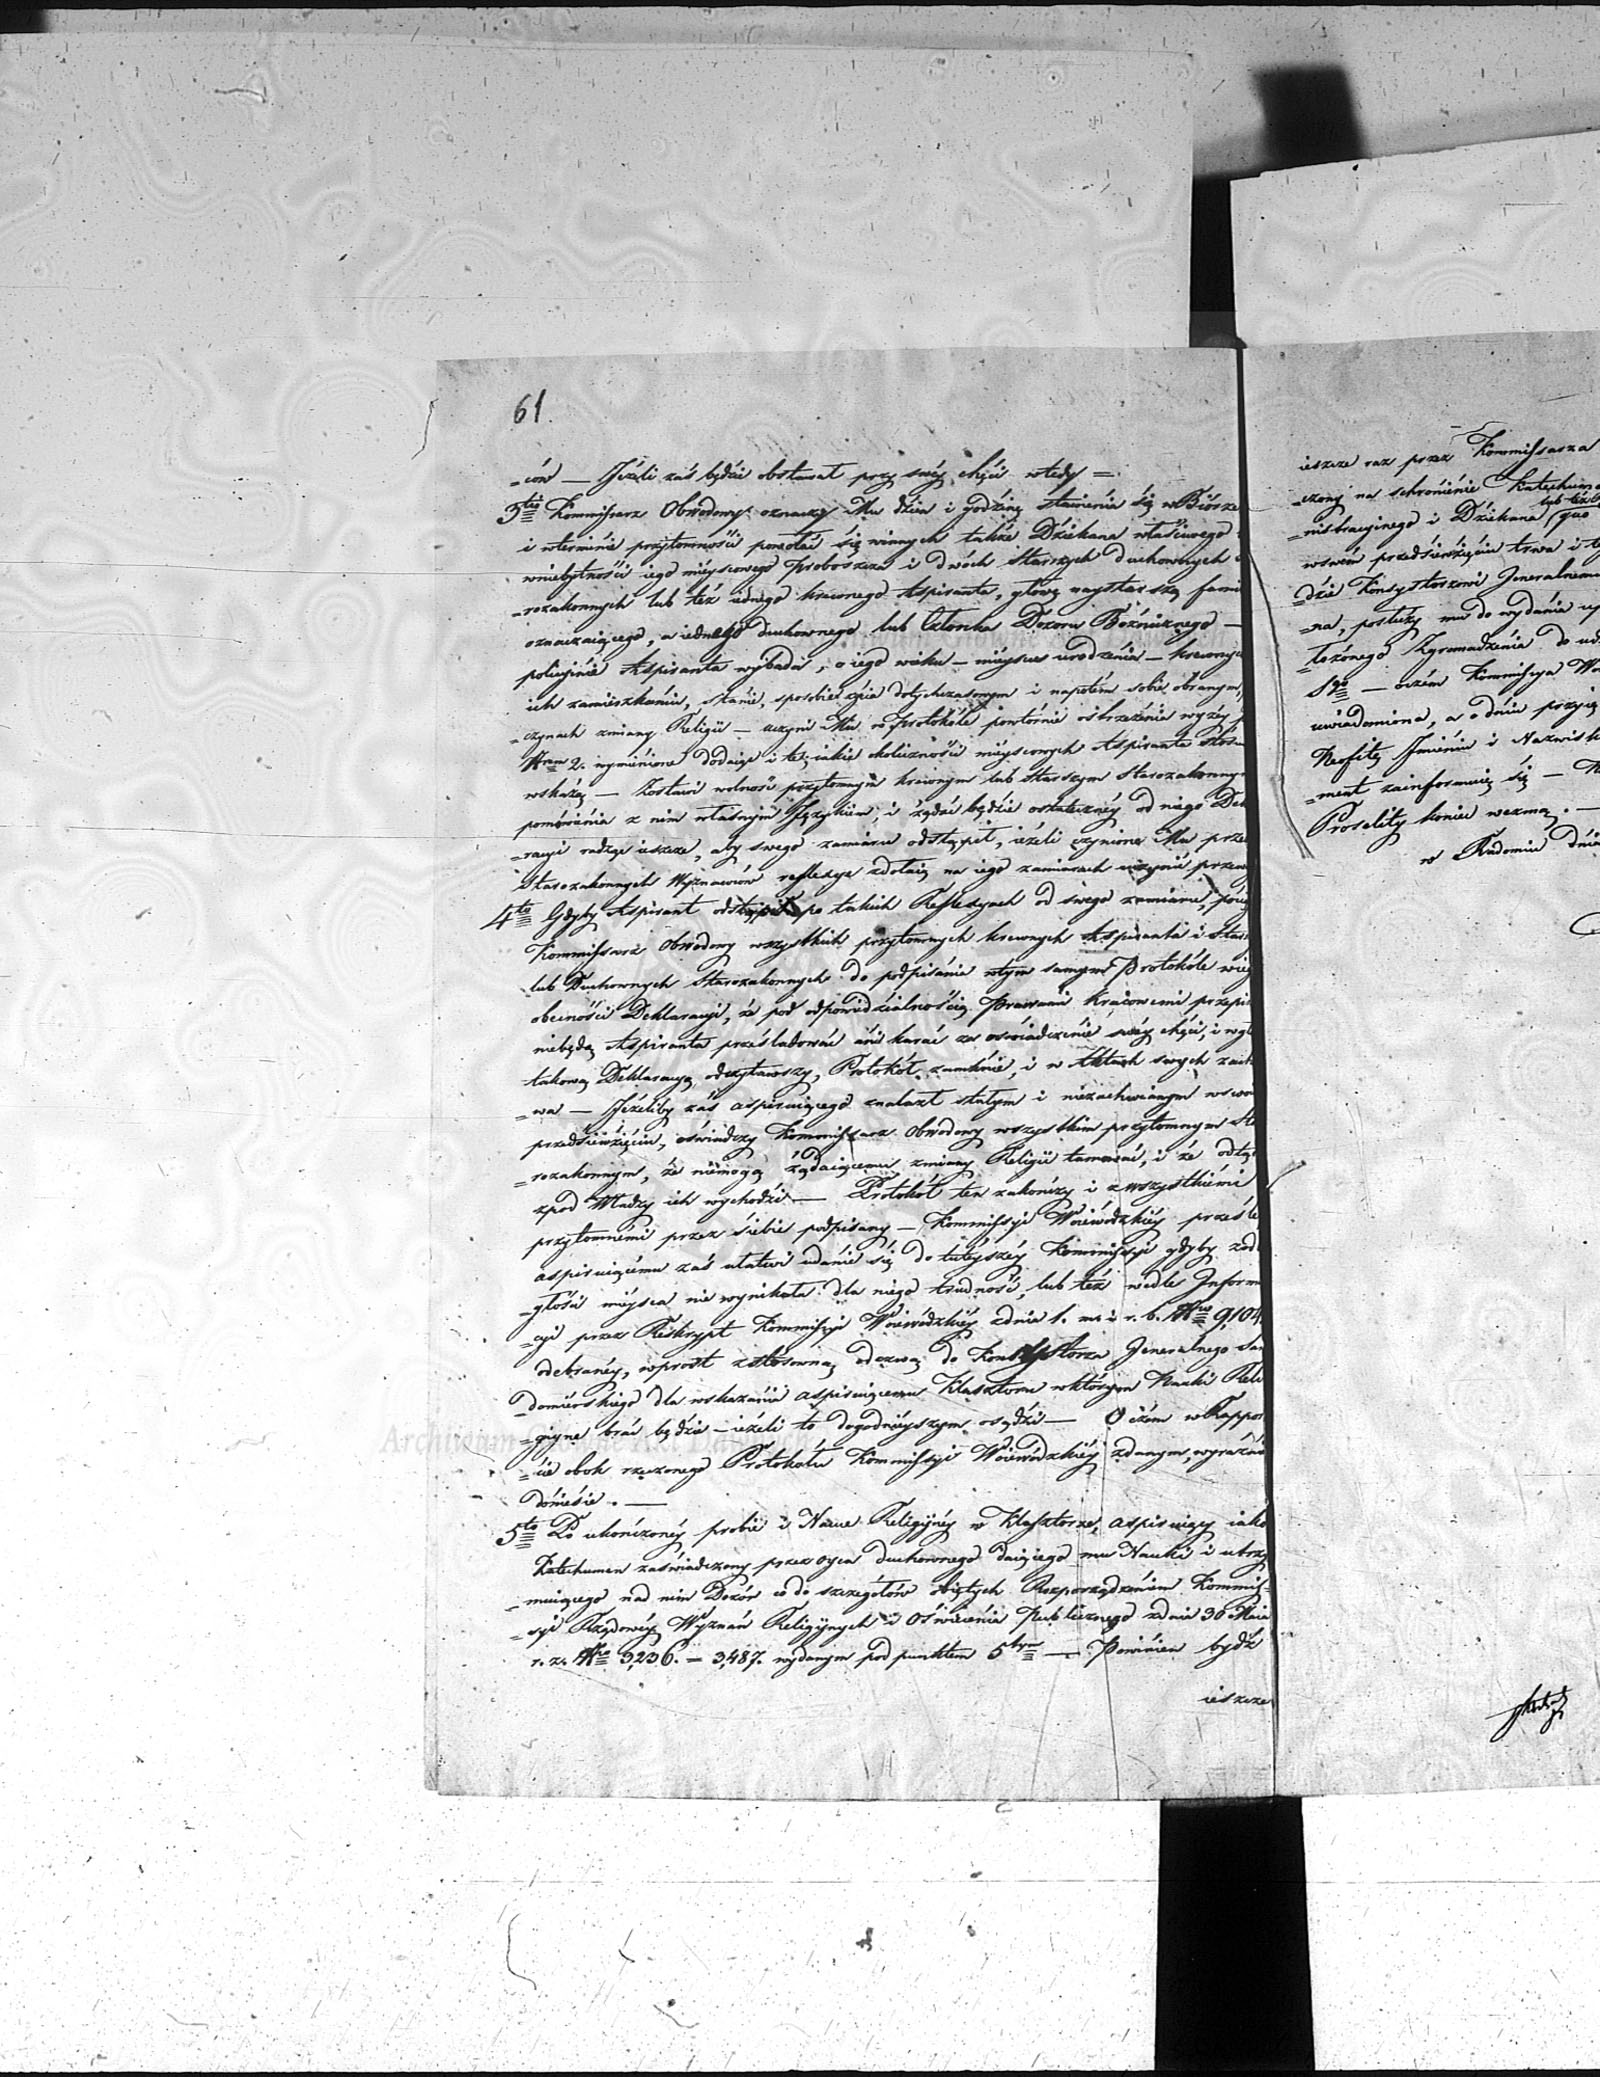 61.
=ców — Jeżeli zaś będzie obstawał przy swéy chęci wtedy =
3tio Kommissarz Obwodowy oznaczy Mu dzień i godzinę stawienia się w Biórze
i wterminie przytomności powołać się winnych także Dziekana właściwego
wniebytności iego mieyscowego Proboszcza i dwóch starszych duchownych
=rozakonnych lub też iednego krewnego Aspiranta, głowę naystarszą fami
oznaczaiącego, a iednego duchownego lub Członka Dozoru Bóźniczego —
policyinie Aspiranta wybada, o iego wieku — mieyscu urodzenia — krewnych
ich zamieszkaniu, stanie, sposobie życia dotychczasowym i napotém sobie obranym,
=czynach zmiany Religii — uczyni Mu w Protokóle powtórnie ostrzeżenia wyżéy
Nrem 2. wymienione dodaiąc i te, iakie okoliczności mieyscowych Aspiranta
wskażą — Zostawi wolność przytomnym krewnym lub Starszym Starozakonnym
pomówienia z nim własnym Językiem, i żądać będzie ostatecznéy od niego Dek
=racyi radząc ieszcze, aby swego zamiaru odstąpił, ieżeli czynione Mu przez
Starozakonnych Wyznawców reflexye zdołaią na iego zamiarach uczynić
4to Gdyby Aspirant odstąpił po takich Reflexyach od swego zamiaru,
Kommissarz Obwodowy wszystkich przytomnych krewnych Aspiranta i Star
lub Duchownych Starozakonnych do podpisania wtym samym Protokóle w iego
obecności Deklaracyi, że pod odpowiedzialnością Prawami Kraiowemi przepi
niebędą Aspiranta prześladować ani karać za oświadczenie swéy chęci, i
takową Deklaracyą odczytawszy, Protokół zamknie, i w Aktach swych zach
=wa — Jeżeliby zaś aspiruiącego znalazł stałym i niezachwianym wswo
przedsięwzięciu, oświadczy Kommissarz Obwodowy wszystkim przytomnym Sta
=rozakonnym, że niemogą żądaiącemu zmiany Religii tamować, i że odtąd
zpod Władzy ich wychodzi — Protokół ten zakończy i zwszystkiemi
przytomnémi przez siebie podpisany — Kommissyi Woiewódzkiéy prześle
aspiruiącemu zaś ułatwi udanie się do tuteyszéy Kommissyi gdyby z od
=głości mieysca nie wynikała dla niego trudność, lub też wedle Informa
=cyi przez Reskrypt Kommissyi Woiewódzkiéy zdnia 1. m. i r. b. Nro 9,104.
odebranéy, wprost zstosowną odezwą do Konsystorza Jeneralnego San
=domierskiego dla wskazania aspiruiącemu Klasztoru wktórym Nauki Reli
=giyne brać będzie — ieżeli to dogodnieyszym osądzi — O czém w Rappor
=cie obok rzeczonego Protokółu Kommissyi Woiewódzkiéy zdanym, wyraźnie
doniesie. —
5to Po ukończonéy probie i Nauce Religiynéy w Klasztorze, aspiruiący iako
Katechumen zaświadczony przez oyca duchownego daiącego mu Nauki i utrzy
=muiącego nad nim Dozór co do szczegółów obiętych Rozporządzeniem Kommis=
=syi Rządowéy Wyznań Religiynych i Oświecenia Publicznego zdnia 30 Maia
r. z. Nro 3,236. — 3,487. wydanym pod punktem 5tym — Powinien bydź
ieszcze
ieszcze raz przez Kommissarza
=czony na schronienie Katechumen
lub też
=nistracyinego i Dziekana (quo
wswém przedsięwzięciu trwa i
=dzie Konsystorzowi Jeneralnemu
=na, posłuży mu do wydania
=łożonego Zgromadzenia do
Sgo — oczém Kommissya Wo
uwiadomiona, a o dniu przyię
Neofitę Imieniu i Nazwisk
=ment zainformuie się —
Proselity koniec wezmą. —
w Radomiu dnia